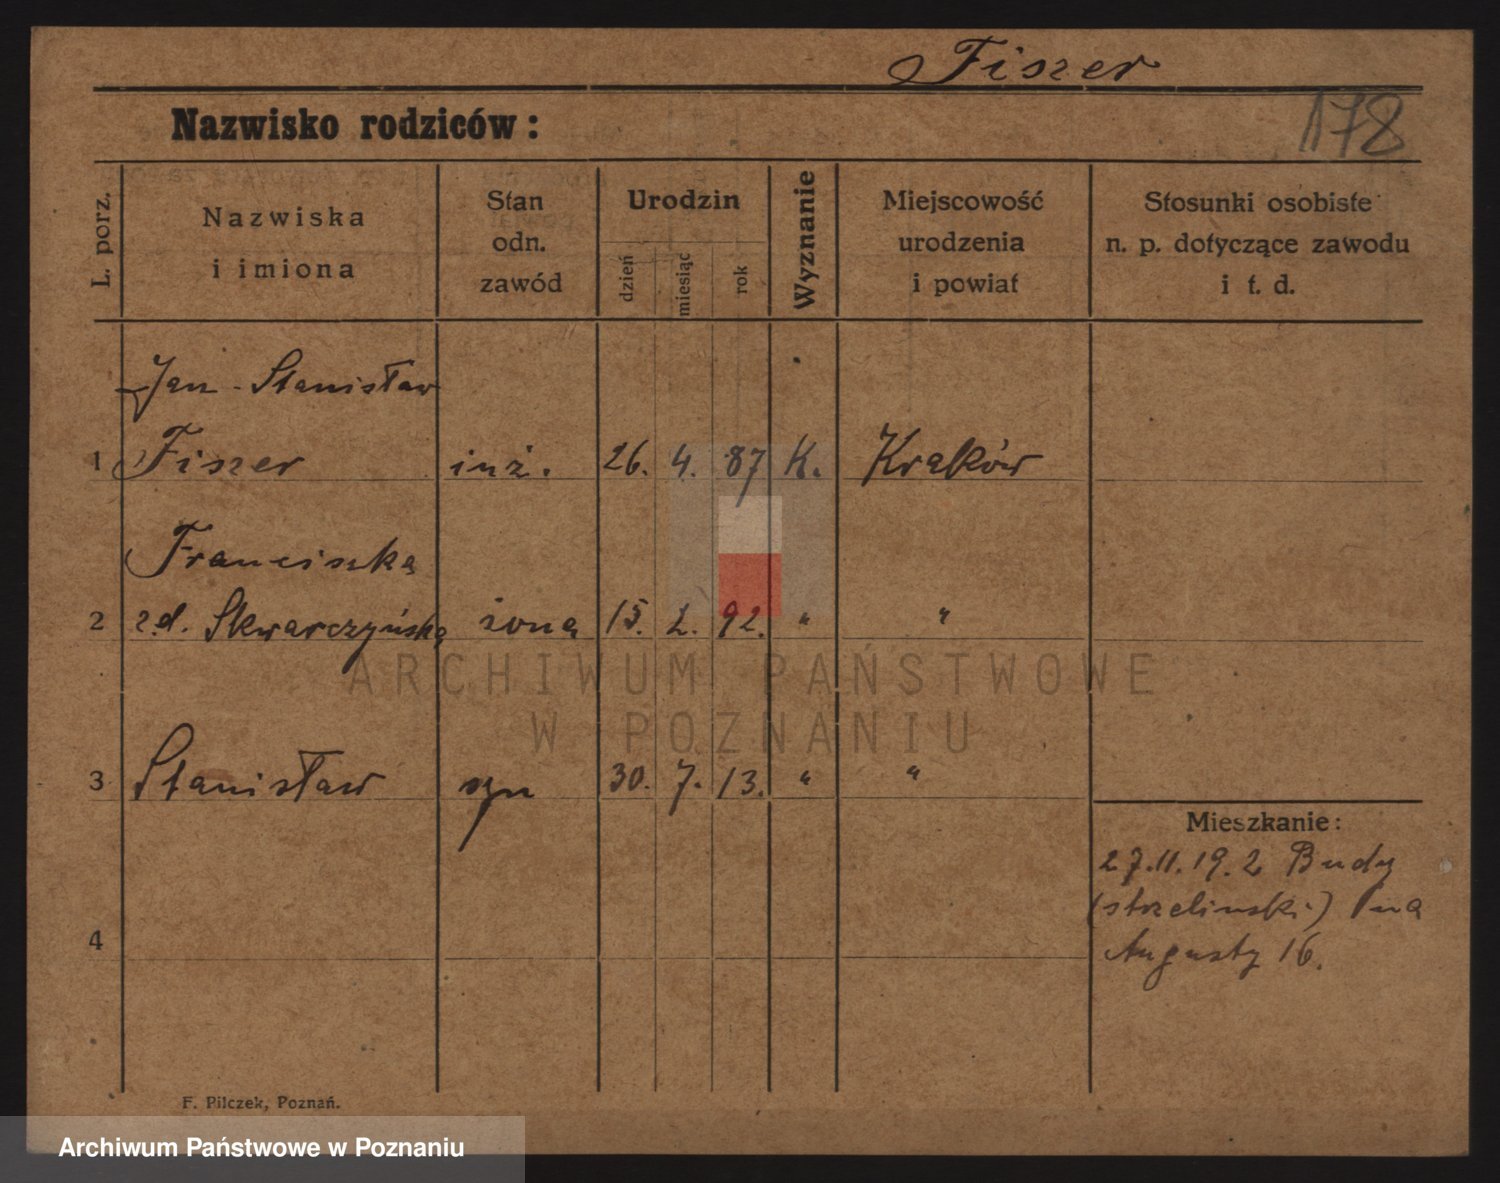 Fiszer
178
Nazwisko rodziców:
L. porz.
Nazwiska
i imiona
Stan
odn.
zawód
Urodzin
dzień
miesiąc
rok
Wyznanie
Miejscowość
urodzenia
i powiat
Stosunki osobiste
n. p. dotyczące zawodu
i t. d.
Jan-Stanisław
1 Fiszer inż. 26. 4. 87 K. Kraków
Franciszka
2 z.d. Skwarczyńska żona 15. 2. 92. " "
3 Stanisław syn 30. 7. 13. " "
Mieszkanie:
27.11.19. z Budy
(strzelinski) na
4
Augusty 16.
ARCHIWUM PAŃSTWOWE
W POZNANIU
F. Pilczek, Poznań.
Archiwum Państwowe w Poznaniu